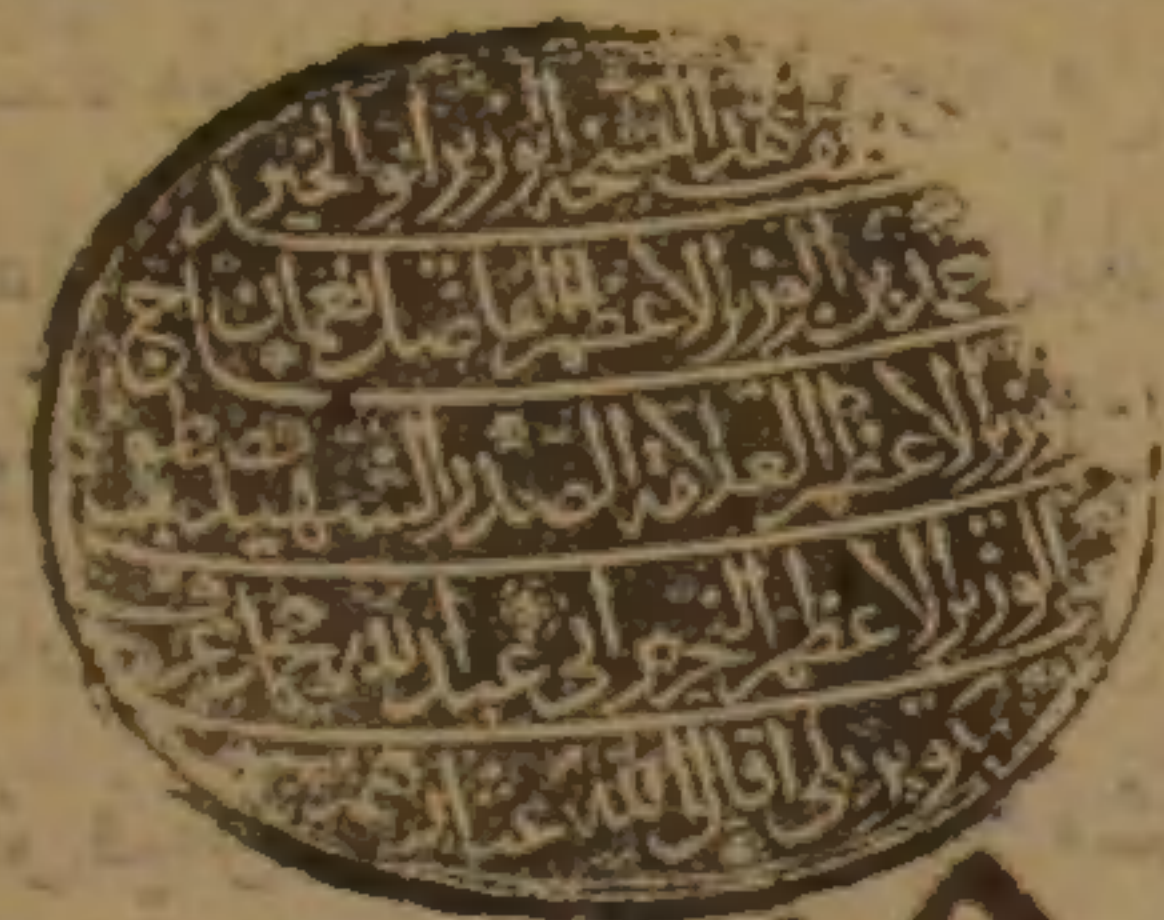 وقف هذه النسخة الوزير ابو الخير احمد
بن الوزير الاعظم الفاضل نعمان اخ
الوزير الاعظم العلامة الصدر الشهيد
الوزير الاعظم ابي عبد الله محمد
كوپريلي اقال الله عثارهم